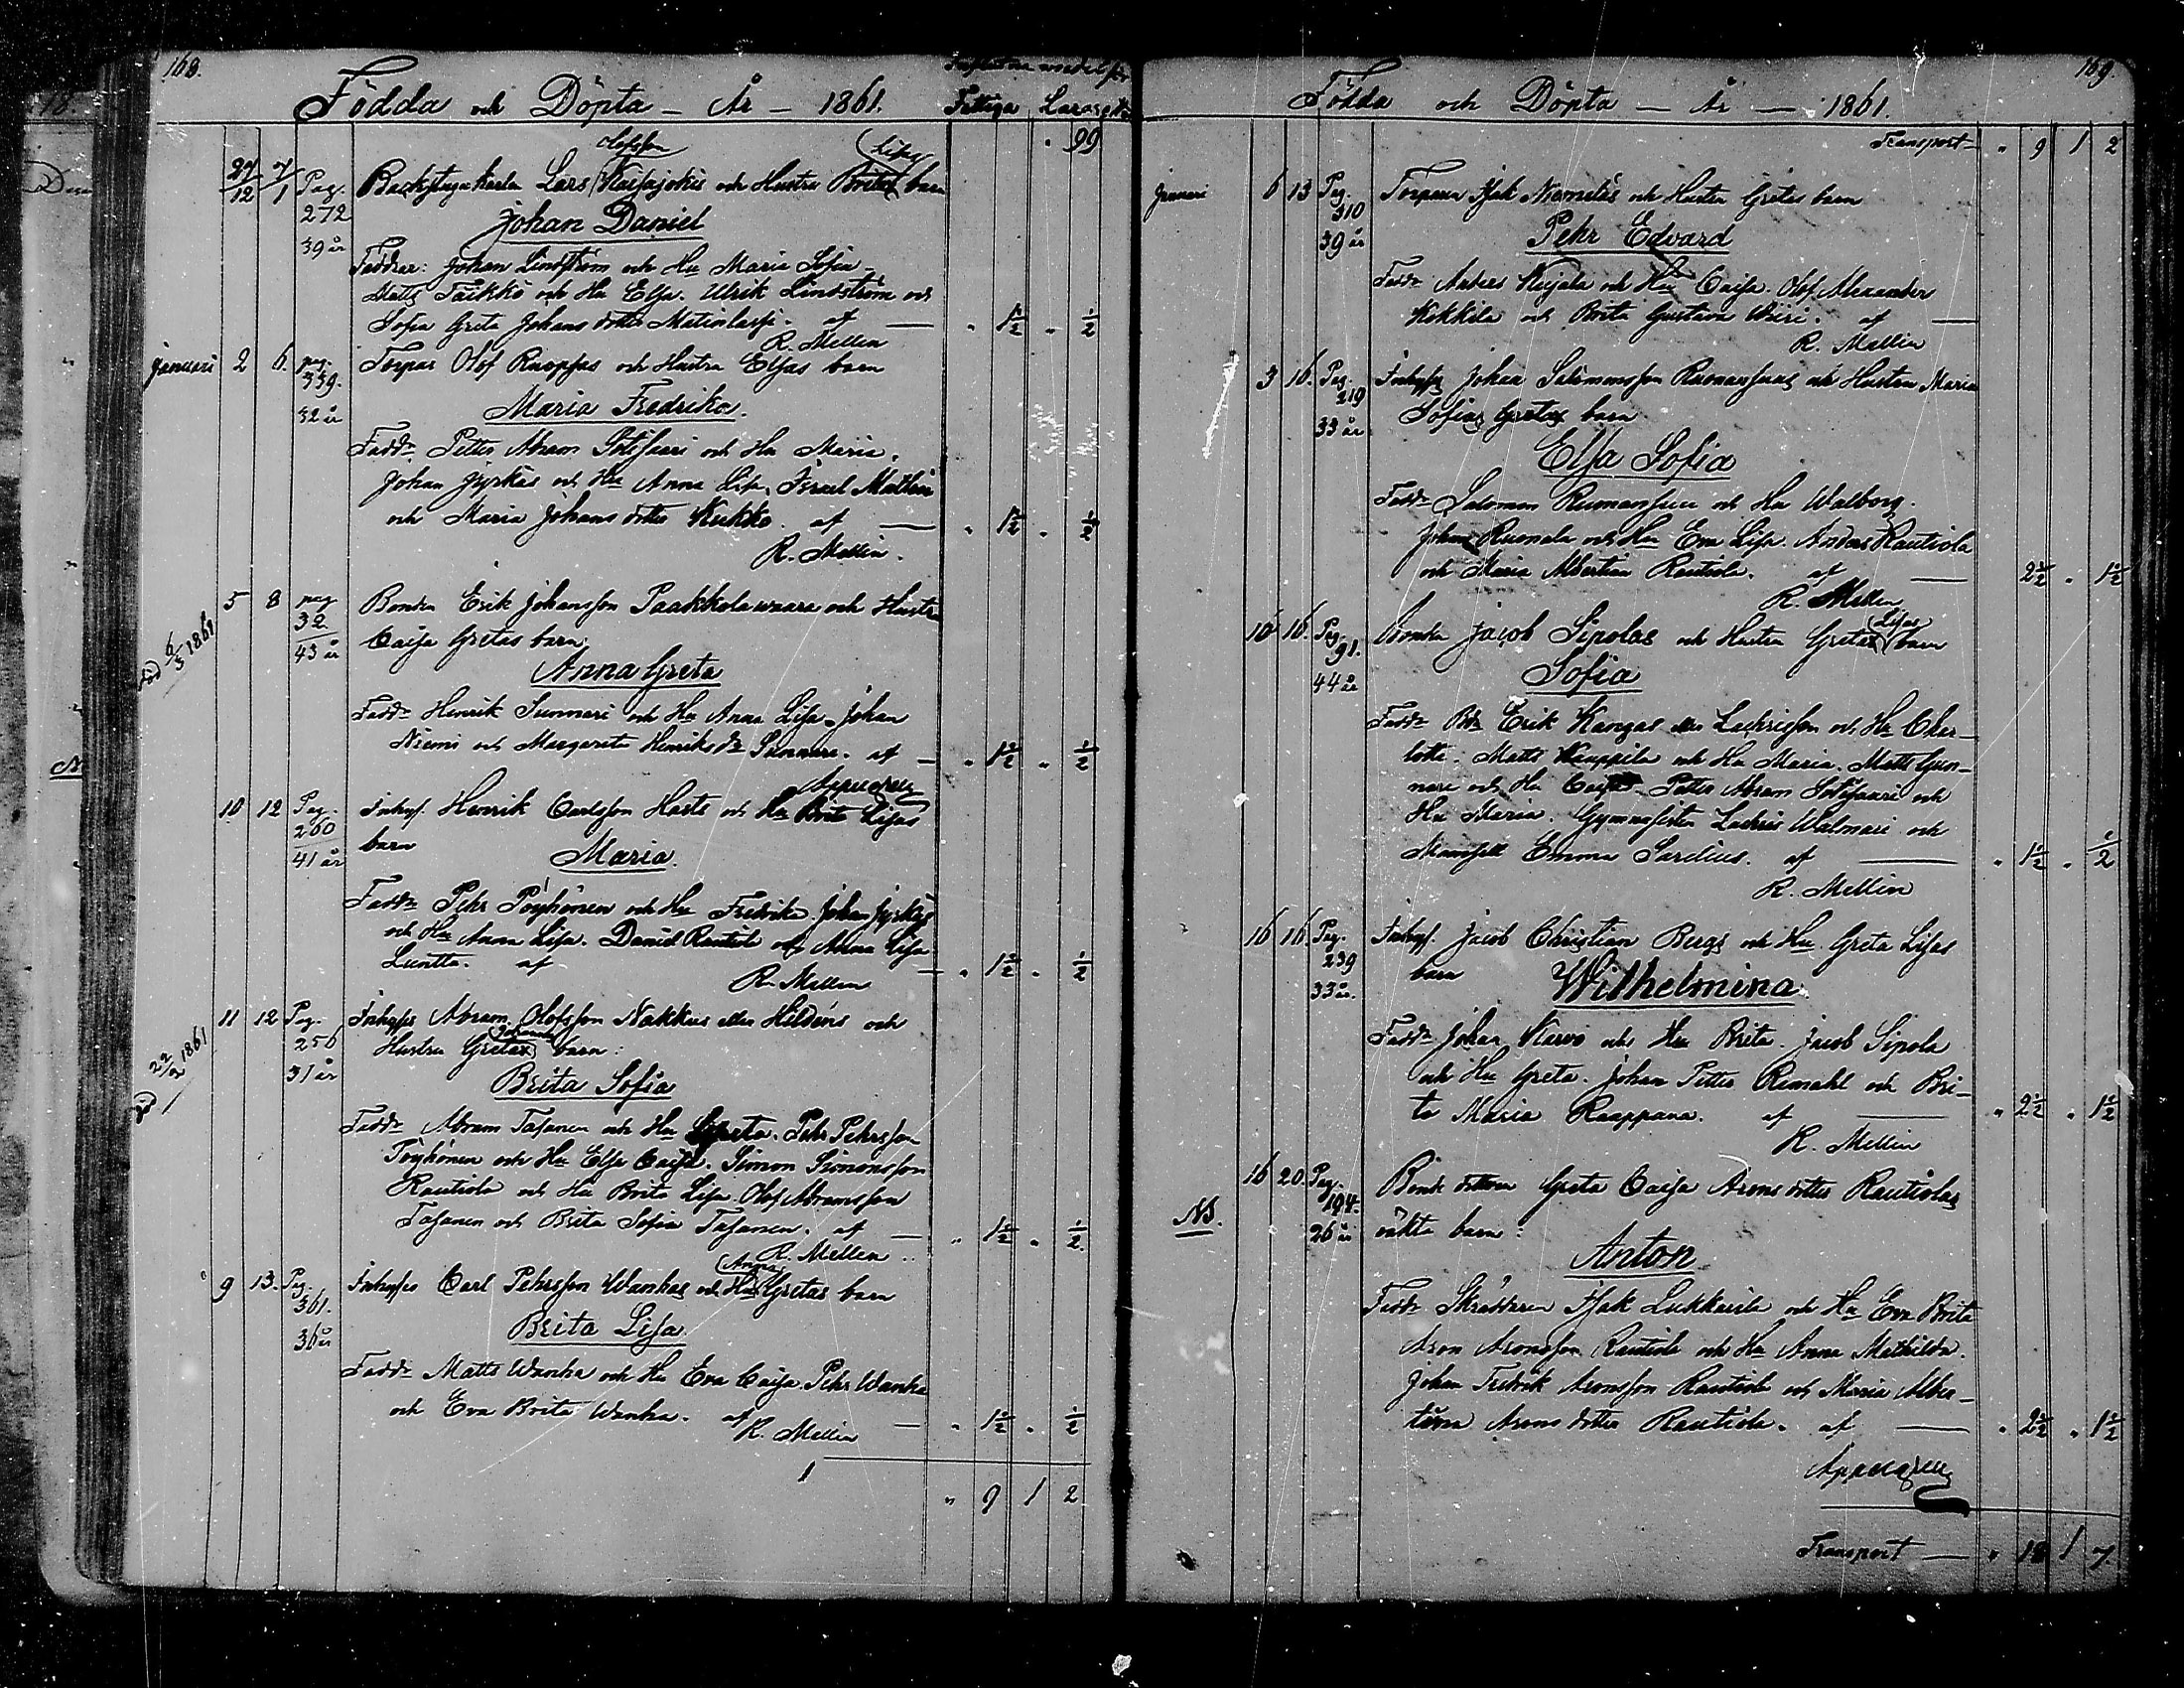 168.
Födda och Döpta - År - 1861. Fattiga Lazarett
Olofsson Lisas " 99
27/12 7/1 Pag. 272 39 år Backstugukarlen Lars Kaisajokis och Hustru Britas barn
Johan Daniel
Faddrar: Johan Lindström och Hu Maria Sofia
Matts Täikkö och Hu Elsa. Ulrik Lindström och
Sofia Greta Johans dotter Matinlassi. af — " 1½ " ½
R. Mellin
Januari 2 6. pag. 339. 32 år Torpar Olof Ruopsas och Hustru Elsas barn
Maria Fredrika.
Fadd: Petter Abram Sotisaari och Hu Maria.
Johan Jyrkäs och Hu Anna Lisa. Israel Mathein
och Maria Johans dotter Kukko. af — " 1½ " ½
R. Mellin.
död 6/3 1861 5 8 pag 32 43 år Bonden Erik Johansson Paakkolawaara och Hustr
Caisa Gretas barn
Anna Greta
Fadd: Henrik Sunnari och Hu Anna Lisa. Johan
Niemi och Margareta Henriks dr Sunnari. af — " 1½ " ½
Appelgren
10 12 Pag. 260 41 år Inhys. Henrik Carlsson Harts och Hu Brita Lisas
barn Maria.
Fadd: Pehr Pöyhönen och Hu Fredrika. Johan Jyrkäs
och Hu Anna Lisa. Daniel Rautio och Anna Lisa
Luntta. af — " 1½ " ½
R. Mellin
död 22/2 1861 11 12 Pag. 256 31 år Inhyses Abram Olofsson Nakkus eller Hildéns och
Hustru Greta Johannas barn:
Brita Sofia
Fadd: Abram Tasanen och Hu Greta. Pehr Pehrsson
Pöyhönen och Hu Elsa Caisa. Simon Simonsson
Rautiola och Hu Brita Lisa. Olof Abramsson
Tasanen och Brita Sofia Tasanen. af — " 1½ " ½
R. Mellin
Anna
9 13. Pag. 361. 36 år Inhyses Carl Pehrsson Wanhas och Hu Gretas barn
Brita Lisa
Fadd: Matts Wanha och Hu Eva Caisa. Pehr Wanha
och Eva Brita Wanha. af — " 1½ " ½
R. Mellin
" 9 1 2
169.
Födda och Döpta — År — 1861.
Transport " 9 1 2
Januari 6 13 Pag. 310 39 år Torparen Isak Niemeläs och Hustru Gretas barn
Pehr Edvard
Fadd: Anders Kujala och Hu Caisa. Olof Alexander
Kokkila och Brita Gustava Wiiri. af —
R. Mellin
3 16. Pag. 219 33 år Inhyses Johan Salomonsson Ruonansuus och Hustru Maria
Sofias Gretas barn
Elsa Sofia
Fadd: Salomon Ruonansuu och Hu Walborg.
Johan Ruonala och Hu Eva Lisa. Anders Rautiola
och Maria Albertina Rautiola. af — 2½ " 1½
R. Mellin
Lisas
10 16. Pag. 91. 44 år Bonden Jacob Sipolas och Hustru Gretas barn
Sofia
Fadd: Bdn Erik Kangas eller Zachrisson och Hu Char-
lotta. Matts Kauppila och Hu Maria. Matts Gun-
nare och Hu Caisa. Petter Abram Sotisaari och
Hu Maria. Gymnasisten Zachris Walmari och
Mamsell Emma Sarelius. af — " 1½ " ½
R. Mellin
16 16. Pag. 239 33 år. Inhys. Jacob Christian Bergs och Hu Greta Lisas
barn Wilhelmina
Fadd: Johan Karvo och Hu Brita. Jacob Sipola
och Hu Greta. Johan Petter Remahl och Bri-
ta Maria Raappana. af — " 2½ " 1½
R. Mellin
NB. 16 20. Pag. 194. 26 år Bonde dottren Greta Caisa Arons dotter Rautiolas
oäkta barn:
Anton
Fadd: Skräddaren Isak Lukkarila och Hu Eva Brita
Aron Aronsson Rautiola och Hu Anna Mathilda.
Johan Fredrik Aronsson Rautiola och Maria Alber-
tina Arons dotter Rautiola. af — " 2½ " 1½
Appelgren
Transport — " 18 1 7